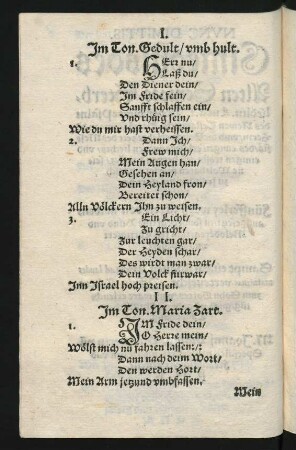 I.
Im Ton. Gedult / vmb hult.
1. HErr nu /
Laß du /
Den Diener dein /
Im Fride fein /
Sanfft schlaffen ein /
Vnd rhüig sein /
Wie du mir hast verheissen.
2. Dann Ich /
Frew mich /
Mein Augen han /
Gesehen an /
Dein Heyland fron /
Bereitet schon /
Alln Völckern Ihn zu weisen.
3. Ein Licht /
Zu gricht /
Zur leuchten gar /
Der Heyden schar /
Des wirdt man zwar /
Dein Volck fürwar /
Inn Israel hoch preisen.
II.
Im Ton. Maria Zart.
1. IM Fride dein /
O Herre mein /
Wölst mich nū fahren lassen:/:
Dann nach deim Wort /
Den werden Hort /
Mein Arm jetzund vmbfassen.
Mein